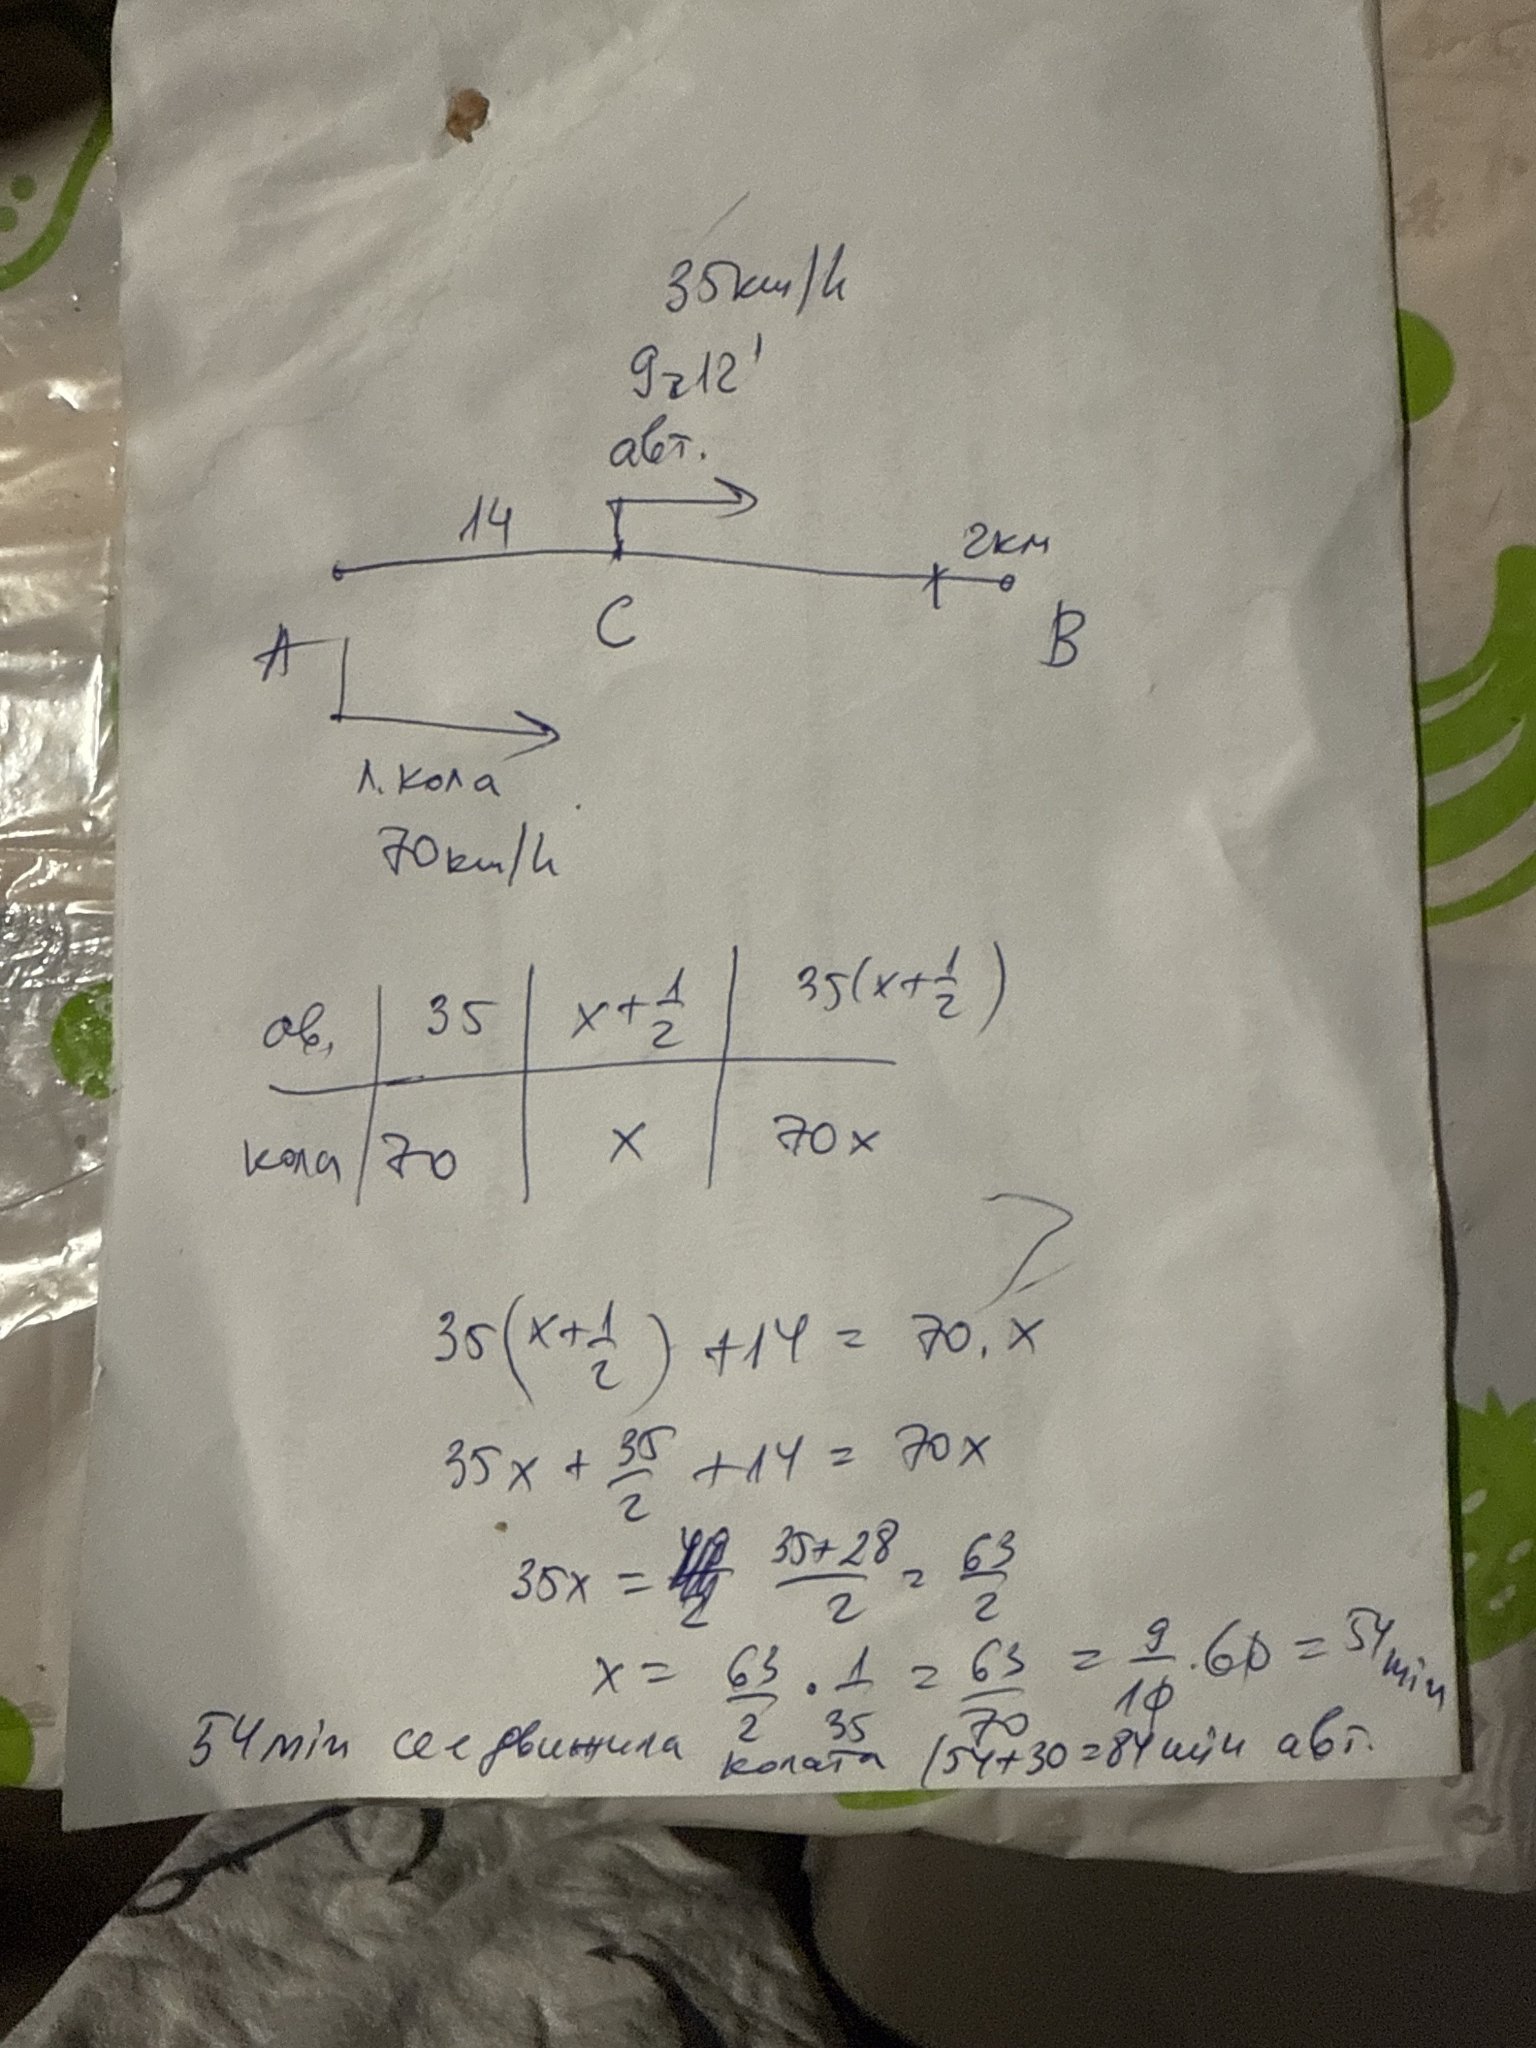 35km/h
9ч12'
авт.
14
2км
A
C
B
л.кола
70km/h
ав. 35 x+1/2 35(x+1/2)
кола 70 x 70x
35(x+1/2)+14=70.x
35x+35/2+14=70x
35x= 35+28/2=63/2
x=63/2.1/35=63/70=9/10.60=54min
54min се е движила колата (54+30=84min авт.